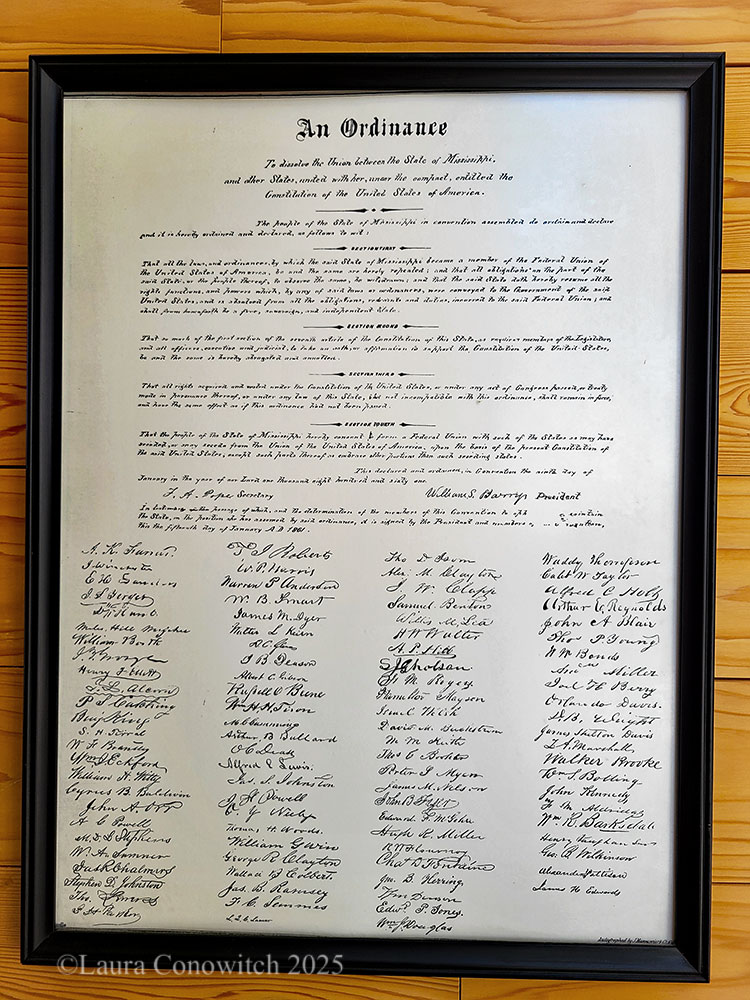 An Ordinance
To dissolve the Union between the State of Mississippi,
and other States, united with her, under the compact, entitled the
Constitution of the United States of America.
The people of the State of Mississippi in convention assembled do ordain and declare
and it is hereby ordained and declared, as follows to wit:
SECTION FIRST
That all the laws, and ordinances, by which the said State of Mississippi became a member of the Federal Union of
the United States of America, be and the same are hereby repealed; and that all obligations on the part of the
said State, or the people thereof, to observe the same, be withdrawn; and that the said State doth hereby resume all the
rights, functions, and powers which, by any of said laws or ordinances, were conveyed to the Government of the said
United States, and is absolved from all the obligations, restraints and duties, incurred to the said Federal Union; and
shall from henceforth be a free, sovereign, and independent State.
SECTION SECOND
That so much of the first section of the seventh article of the Constitution of this State, as requires members of the Legislature,
and all officers, executive and judicial, to take an oath, or affirmation to support the Constitution of the United States,
be and the same is hereby abrogated and annulled.
SECTION THIRD
That all rights acquired and vested under the Constitution of the United States, or under any act of Congress passed, or treaty
made in pursuance thereof, or under any law of this State, and not incompatible with this ordinance, shall remain in force,
and have the same effect as if this ordinance had not been passed.
SECTION FOURTH
That the people of the State of Mississippi hereby consent to form a Federal Union with such of the States as may have
seceded, or may secede from the Union of the United States of America, upon the basis of the present Constitution of
the said United States, except such parts thereof as embrace other portions than such seceding states.
Thus declared and ordained, in Convention the ninth day of
January in the year of our Lord one thousand eight hundred and sixty one.
F. A. Pope Secretary William S. Barry President
In testimony of the passage of which, and the determination of the members of this Convention to
the State, in the position she has assumed by said ordinance, it is signed by the President and members
this the fifteenth day of January A.D 1861.
A. K. Farrar.
J Winchester
E H Sanders
William Booth
Henry T Ellett
J. L. Alcorn
P S Catching
Benj King
S. H. Terral
W. F. Brantly
Wm J. Eckford
William H. Witty
Cyrus B. Baldwin
John A Orr
A C Powell
M. D. L. Stephens
W. A. Sumner
Jas R Chalmers
Stephen D. Johnston
T. J Roberts
W. P. Harris
Warren P Anderson
W. B. Smart
James M. Dyer
Walter L Keirn
J B Deason
Albert C. Gibson
Russell C Beene
W. H. H. Tison
M. C Cummings
Arthur B Bullard
O C Dease
Alfred E Lewis.
Jas. S. Johnston
J H Powell
O. Y Neely
Thomas H. Woods.
William Gwin
George R. Clayton
Wallace B Colbert.
Jas. B. Ramsey
F. C. Semmes
L. Q. C Lamar
Alex. M. Clayton
J. W. Clapp
Samuel Benton
Willis M. Lea
H W Walter
A. P. Hill
S J Gholson
Hamilton Mayson
Israel Welch
David M. Backstrom
M. M Keith
Thos C Bookter
Porter J Myers
James M. Nelson
Hugh R. Miller
Chas D Fontaine
Jno. B. Herring.
Wm Denson
Edwd. P. Jones.
Wm J. Douglas
Waddy Thompson
Caleb W Taylor
Alfred C Holt
Arthur E Reynolds
John A Blair
Thos P Young
W. W. Bonds
Miller
Joel H Berry
Orlando Davis.
J. B. Wright
James Sutton Davis
D. A. Marshall
Walker Brooke
Wm S. Bolling
John Kennedy
F M Aldridge
Wm R. Barksdale
Geo. R Wilkinson
Alexander Pattison
James H Edwards
©Laura Conowitch 2025